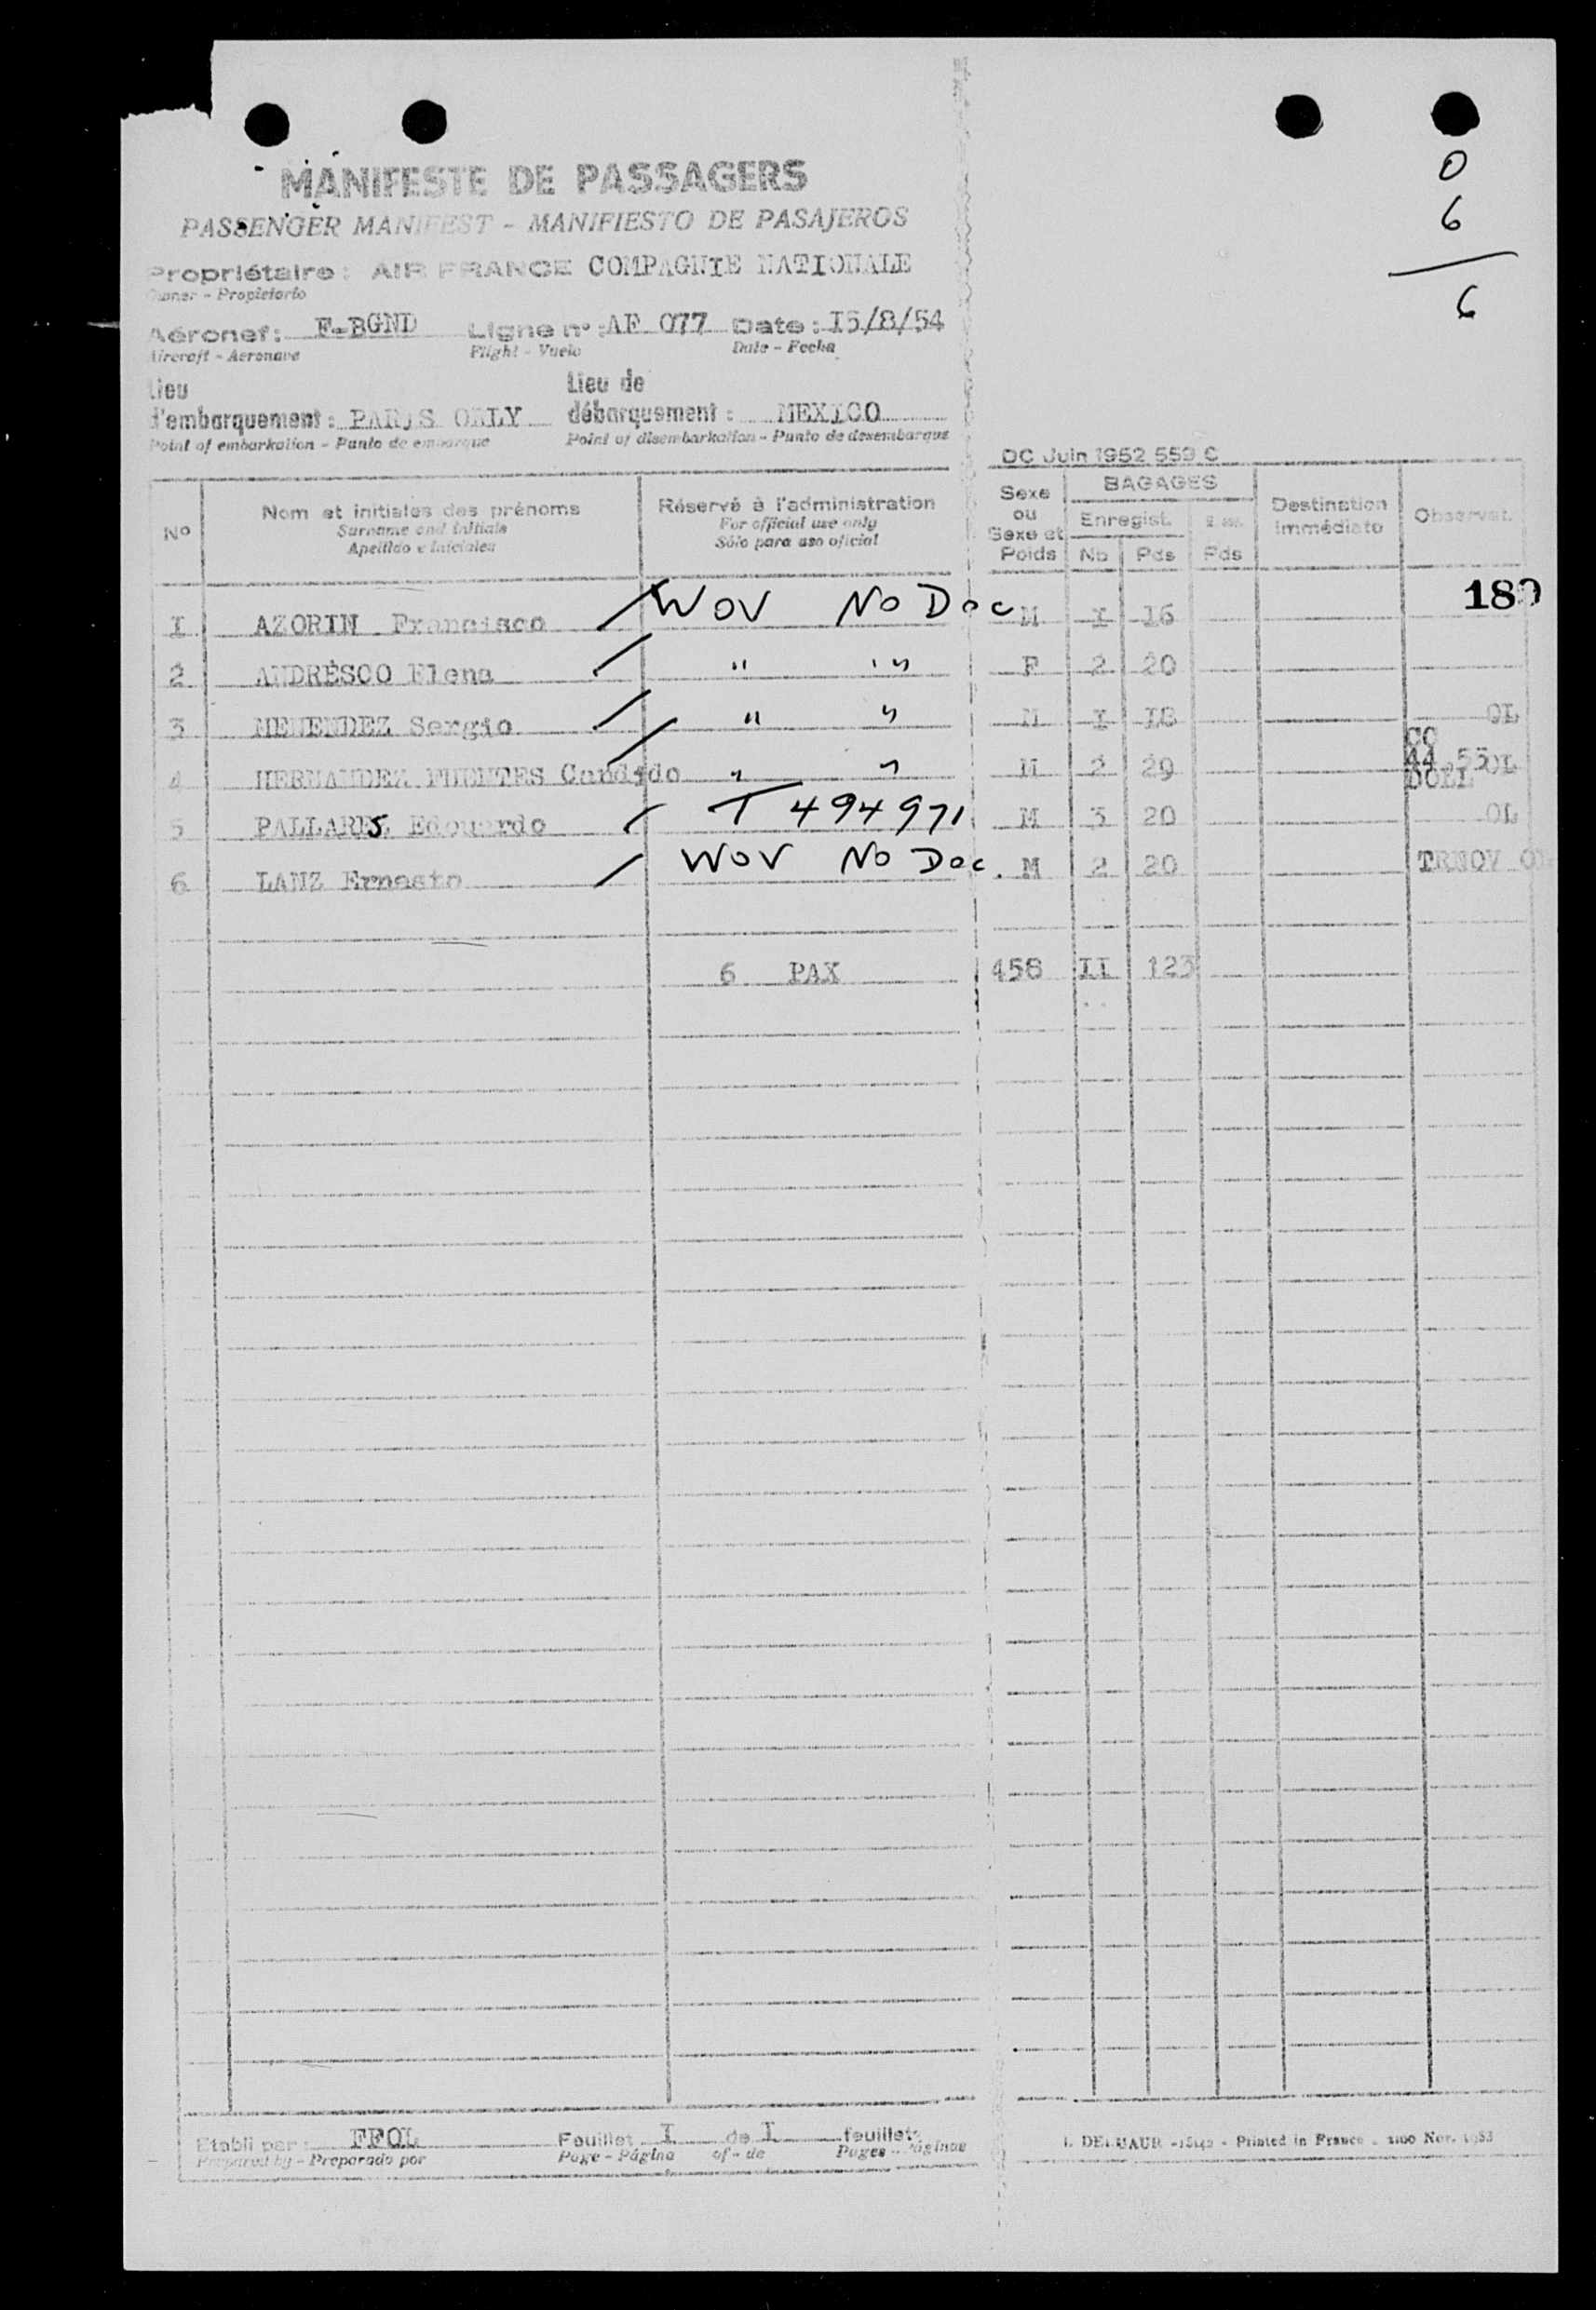 0
6
6
MANIFESTE DE PASSAGERS
PASSENGER MANIFEST - MANIFIESTO DE PASAJEROS
Propriétaire : AIR FRANCE COMPAGNIE NATIONALE
Owner - Propietario
Aéronef : F-BGND Ligne n° : AF 077 Date : I5/8/54
Aircraft - Aeronave Flight - Vuelo Date - Fecha
Lieu d'embarquement : PARIS ORLY Lieu de débarquement : MEXICO
Point of embarkation - Punto de embarque Point of disembarkation - Punto de desembarque
DC Juin 1952 559 C
Nº Nom et initiales des prénoms Réservé à l'administration Sexe ou Sexe et Poids BAGAGES Destination immédiate Observat.
Surname and initials For official use only Enregist.
Apellido e iniciales Sólo para uso oficial Nb Pds Pds
189
I AZORIN Francisco WOV No Doc M I 16
2 ANDRESCO Elena " " F 2 20
3 MENENDEZ Sergio " " M I I8 OL
4 HERNANDEZ FUENTES Candido " " M 2 29 CO 44.55 DOLL OL
5 PALLARES Edouardo T 494971 M 3 20 OL
6 LANZ Ernesto WOV No Doc. M 2 20 TRNOV
6 PAX 458 II 123
Etabli par : FFOL Feuillet I de I feuillets
Prepared by - Preparado por Page - Página of - de Pages - Páginas
Printed in France